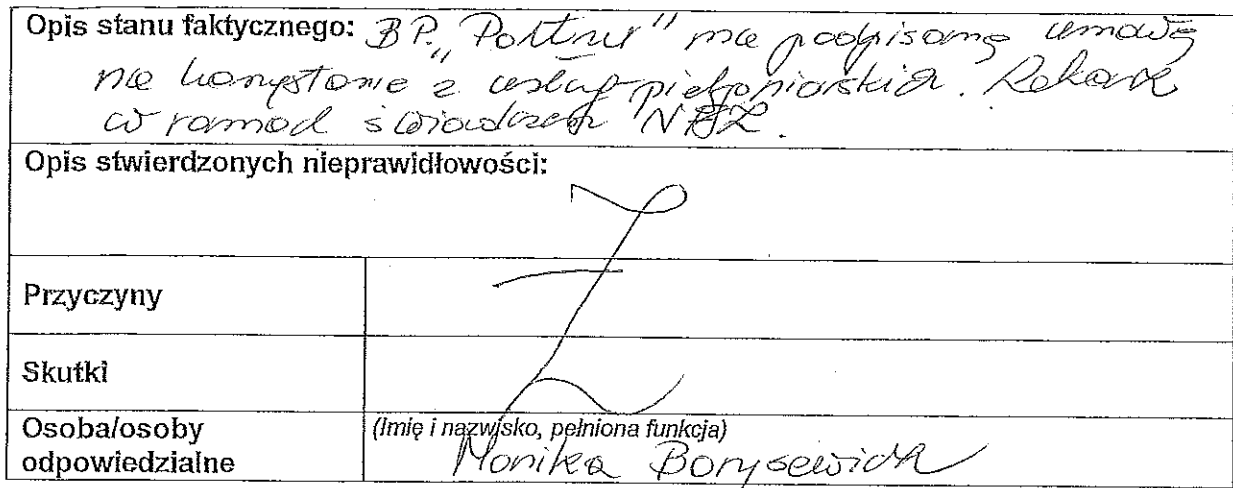 Opis stanu faktycznego: BP. „Partner” ma podpisaną umowę
na korzystanie z usług pielęgniarskich. Lekarz
w ramach świadczeń NFZ.
Opis stwierdzonych nieprawidłowości:
Przyczyny
Skutki
Osoba/osoby odpowiedzialne
(Imię i nazwisko, pełniona funkcja)
Monika Borysewicz